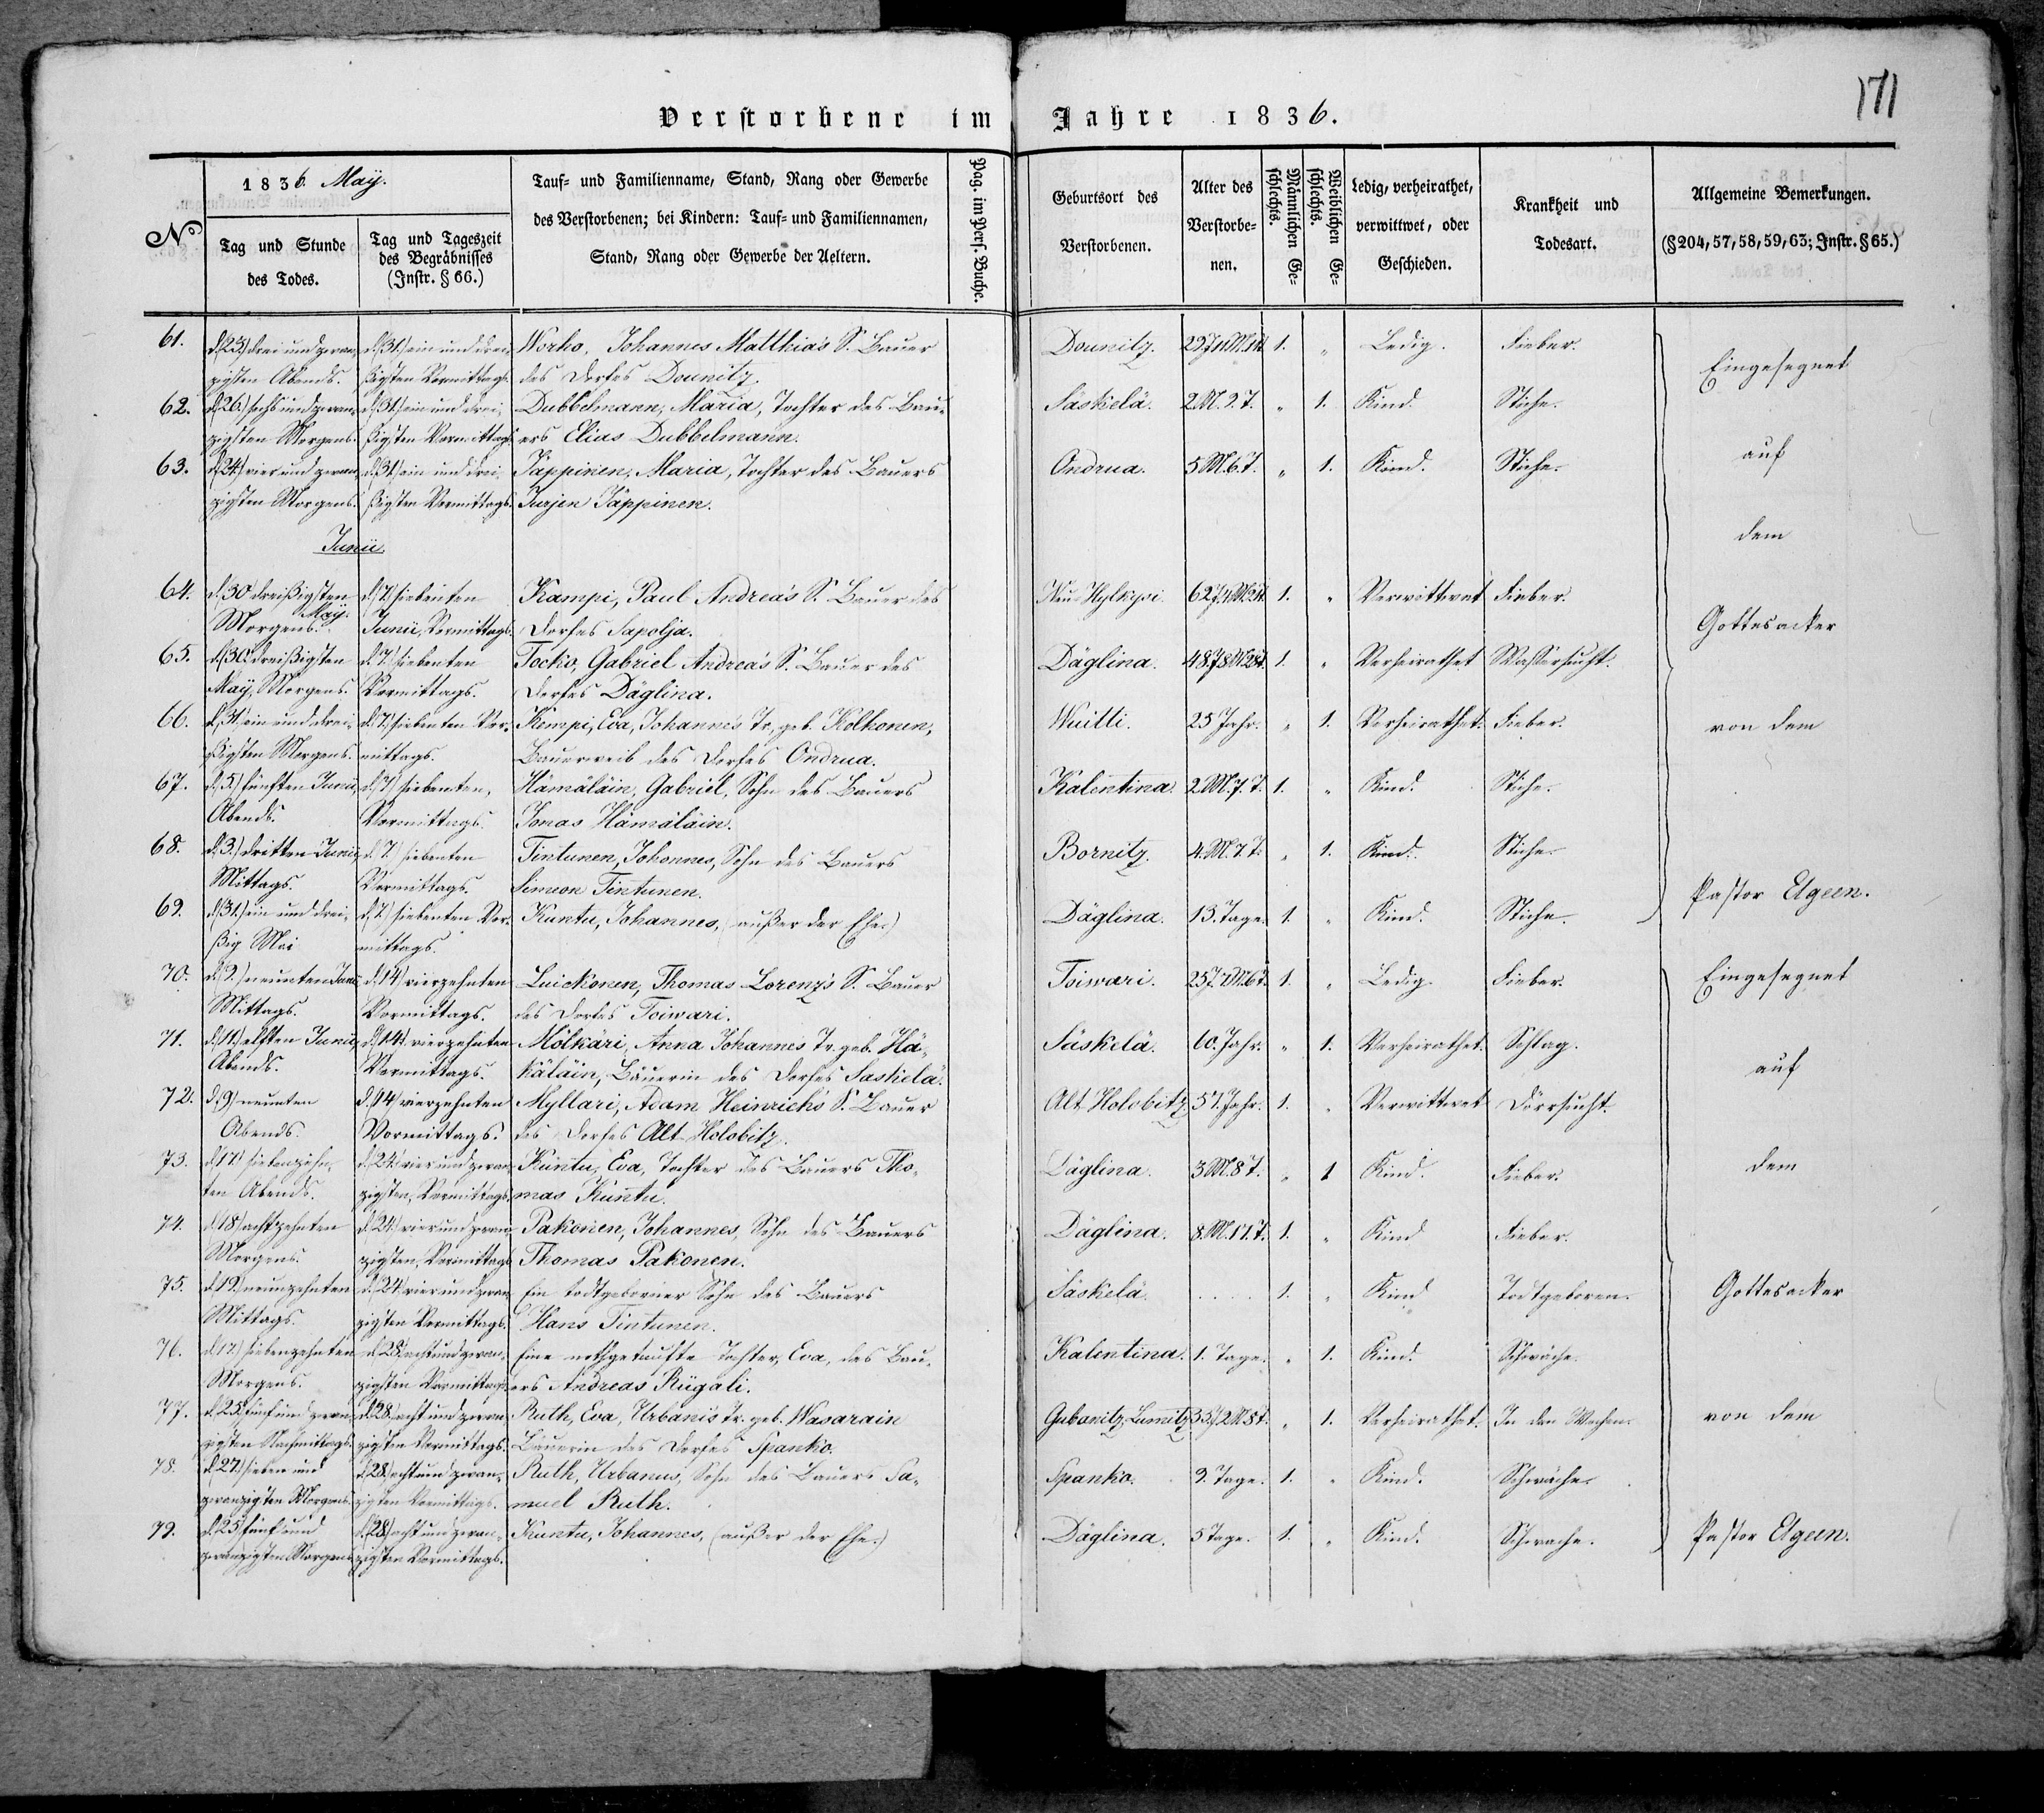 171
Verstorbene im Jahre 1836.
No
1836. Maÿ.
Tag und Stunde des Todes.
Tag und Tageszeit des Begräbnisses (Instr. § 66.)
Tauf- und Familienname, Stand, Rang oder Gewerbe des Verstorbenen; bei Kindern: Tauf- und Familiennamen, Stand, Rang oder Gewerbe der Aeltern.
Pag. im Pers. Buche.
Geburtsort des Verstorbenen.
Alter des Verstorbenen.
Männlichen Geschlechts.
Weiblichen Geschlechts.
Ledig, verheirathet, verwittwet, oder Geschieden.
Krankheit und Todesart.
Allgemeine Bemerkungen. (§ 204, 57, 58, 59, 63; Instr. § 65.)
61. d. (23.) drei und zwan- d. (31.) ein und drei- Worho, Johannes Matthias S. Bauer Dounitz. 1. " Ledig. Fieber.
zigsten Abends. ßigsten Vormittags. des Dorfes Dounitz.
62. d. (26.) sechs und zwan- d. (31.) ein und drei- Dubbelmann, Maria, Tochter des Bau- Säskelä. 2 M. 9. T. " 1. Kind. Stiche.
zigsten Morgens. ßigsten Vormittags. ers Elias Dubbelmann.
63. d. (24.) vier und zwan- d. (31.) ein und drei- Jäppinen, Maria, Tochter des Bauers Ondrua. 5 M. 6. T. " 1. Kind. Stiche.
zigsten Morgens. ßigsten Vormittags. Jurjen Jäppinen.
Junii.
64. d. 30 dreißigsten d. (7.) siebenten Kampi, Paul Andreas S. Bauer des Neu Hylkysi. 1. " Verwittwet Fieber.
Morgens. May. Junii, Vormittags. Dorfes Sapolja.
65. d. 30. dreißigsten d. 7. siebenten Tocko, Gabriel Andreas S. Bauer des Däglina. 48 J. 8 M. 28 T. 1. " Verheirathet Waßersucht.
May, Morgens. Vormittags. Dorfes Däglina.
66. d. 31. ein und drei- d. 7. siebenten Vor- Kempi, Eva, Johannes Tr. geb. Kolhonen, Wuitti. 25 Jahr. " 1. Verheirathet. Fieber.
ßigsten Morgens. mittags. Bauerweib des Dorfes Ondrua.
67. d. (5.) fünften Junii, d. (7.) siebenten, Hämäläin, Gabriel, Sohn des Bauers Kalentina. 2. M. 7. T. 1. " Kind. Stiche.
Abends. Vormittags. Jonas Hämäläin.
68. d. 3. dritten Junii d. 7. siebenten Tintunen, Johannes, Sohn des Bauers Bornitz. 4. M. 7. T. " 1. Kind. Stiche.
Mittags. Vormittags. Simeon Tintunen.
69. d. (31.) ein und drei- d. (7.) siebenten Vor- Kuntu, Johannes, (außer der Ehe.) Däglina. 13. Tage. 1. " Kind. Stiche.
ßig Mai mittags.
Eingesegnet
auf
dem
Gottesacker
von dem
Pastor Elgeen.
70. d. (9.) neunten Junii d. (14) vierzehnten Luickonen, Thomas Lorenz's S. Bauer Toiwari. 25 J. 7 M. 6 T. 1. " Ledig. Fieber.
Mittags. Vormittags. des Dorfes Toiwari.
71. d. (11.) elften Junii, d. (14.) vierzehnten Mölkäri, Anna Johannes Tr. geb. Hä- Säskelä. 60. Jahr. " 1. Verheirathet. Schlag.
Abends. Vormittags. käläin, Bäuerin des Dorfes Saskelä.
72. d. (9) neunten d. (14) vierzehnten Myllari, Adam Heinrichs S. Bauer Alt Holobitz. 57. Jahr. 1. " Verwittwet Dörrsucht.
Abends. Vormittags. des Dorfes Alt Holobitz.
73. d. 17. siebenzehn- d. (24.) vier und zwan- Kuntu, Eva, Tochter des Bauers Tho- Däglina. 3 M. 8 T. " 1 Kind. Fieber.
ten Abends. zigsten, Vormittags. mas Kuntu.
74. d. (18) achtzehnten d. 24. vier und zwan- Pakonen, Johannes, Sohn des Bauers Däglina. 8. M. 17. T. 1. " Kind Fieber.
Morgens. zigsten, Vormittags Thomas Pakonen.
75. d. 19. neunzehnten d. 24. vier und zwan- Ein todtgeborner Sohn des Bauers Säskelä. .... 1. " Kind Todtgeboren.
Mittags. zigsten Vormittags. Hans Tintunen.
76. d. 17. siebenzehnten d. 28. acht und zwan- Eine nothgetaufte Tochter, Eva, des Bau- Kalentina. 1. Tage. " 1. Kind. Schwäche.
Morgens. zigsten Vormittags. ers Andreas Rügali.
77. d. 25. fünf und zwan- d. 28. acht und zwan- Ruth, Eva, Urbanis Tr. geb. Wasarain Gubanitz, 35 J. 2 M. 8 T. " 1. Verheirathet. In den Wochen.
zigsten Nachmittags. zigsten Vormittags. Bäuerin des Dorfes Spanko.
78. d. 27. sieben und d. 28. acht und zwan- Ruth, Urbanus, Sohn des Bauers Sa- Spanko. 9. Tage. 1. " Kind. Schwäche.
zwanzigsten Morgens. zigsten Vormittags. muel Ruth.
79. d. 25 fünf und d. (28) acht und zwan- Kuntu, Johannes, (außer der Ehe.) Däglina. 5 Tage. 1. " Kind. Schwache.
zwanzigsten Morgens zigsten Vormittags.
Eingesegnet
auf
dem
Gottesacker
von dem
Pastor Elgeen.